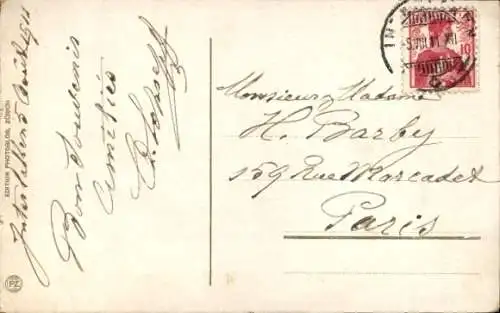 Interlaken 5 Août 1911
Bon Souvenir
Amitiés
EDITION PHOTOGLOB, ZÜRICH
PZ
10
Monsieur Madame
H. Barby
159 Rue Marcadet
Paris